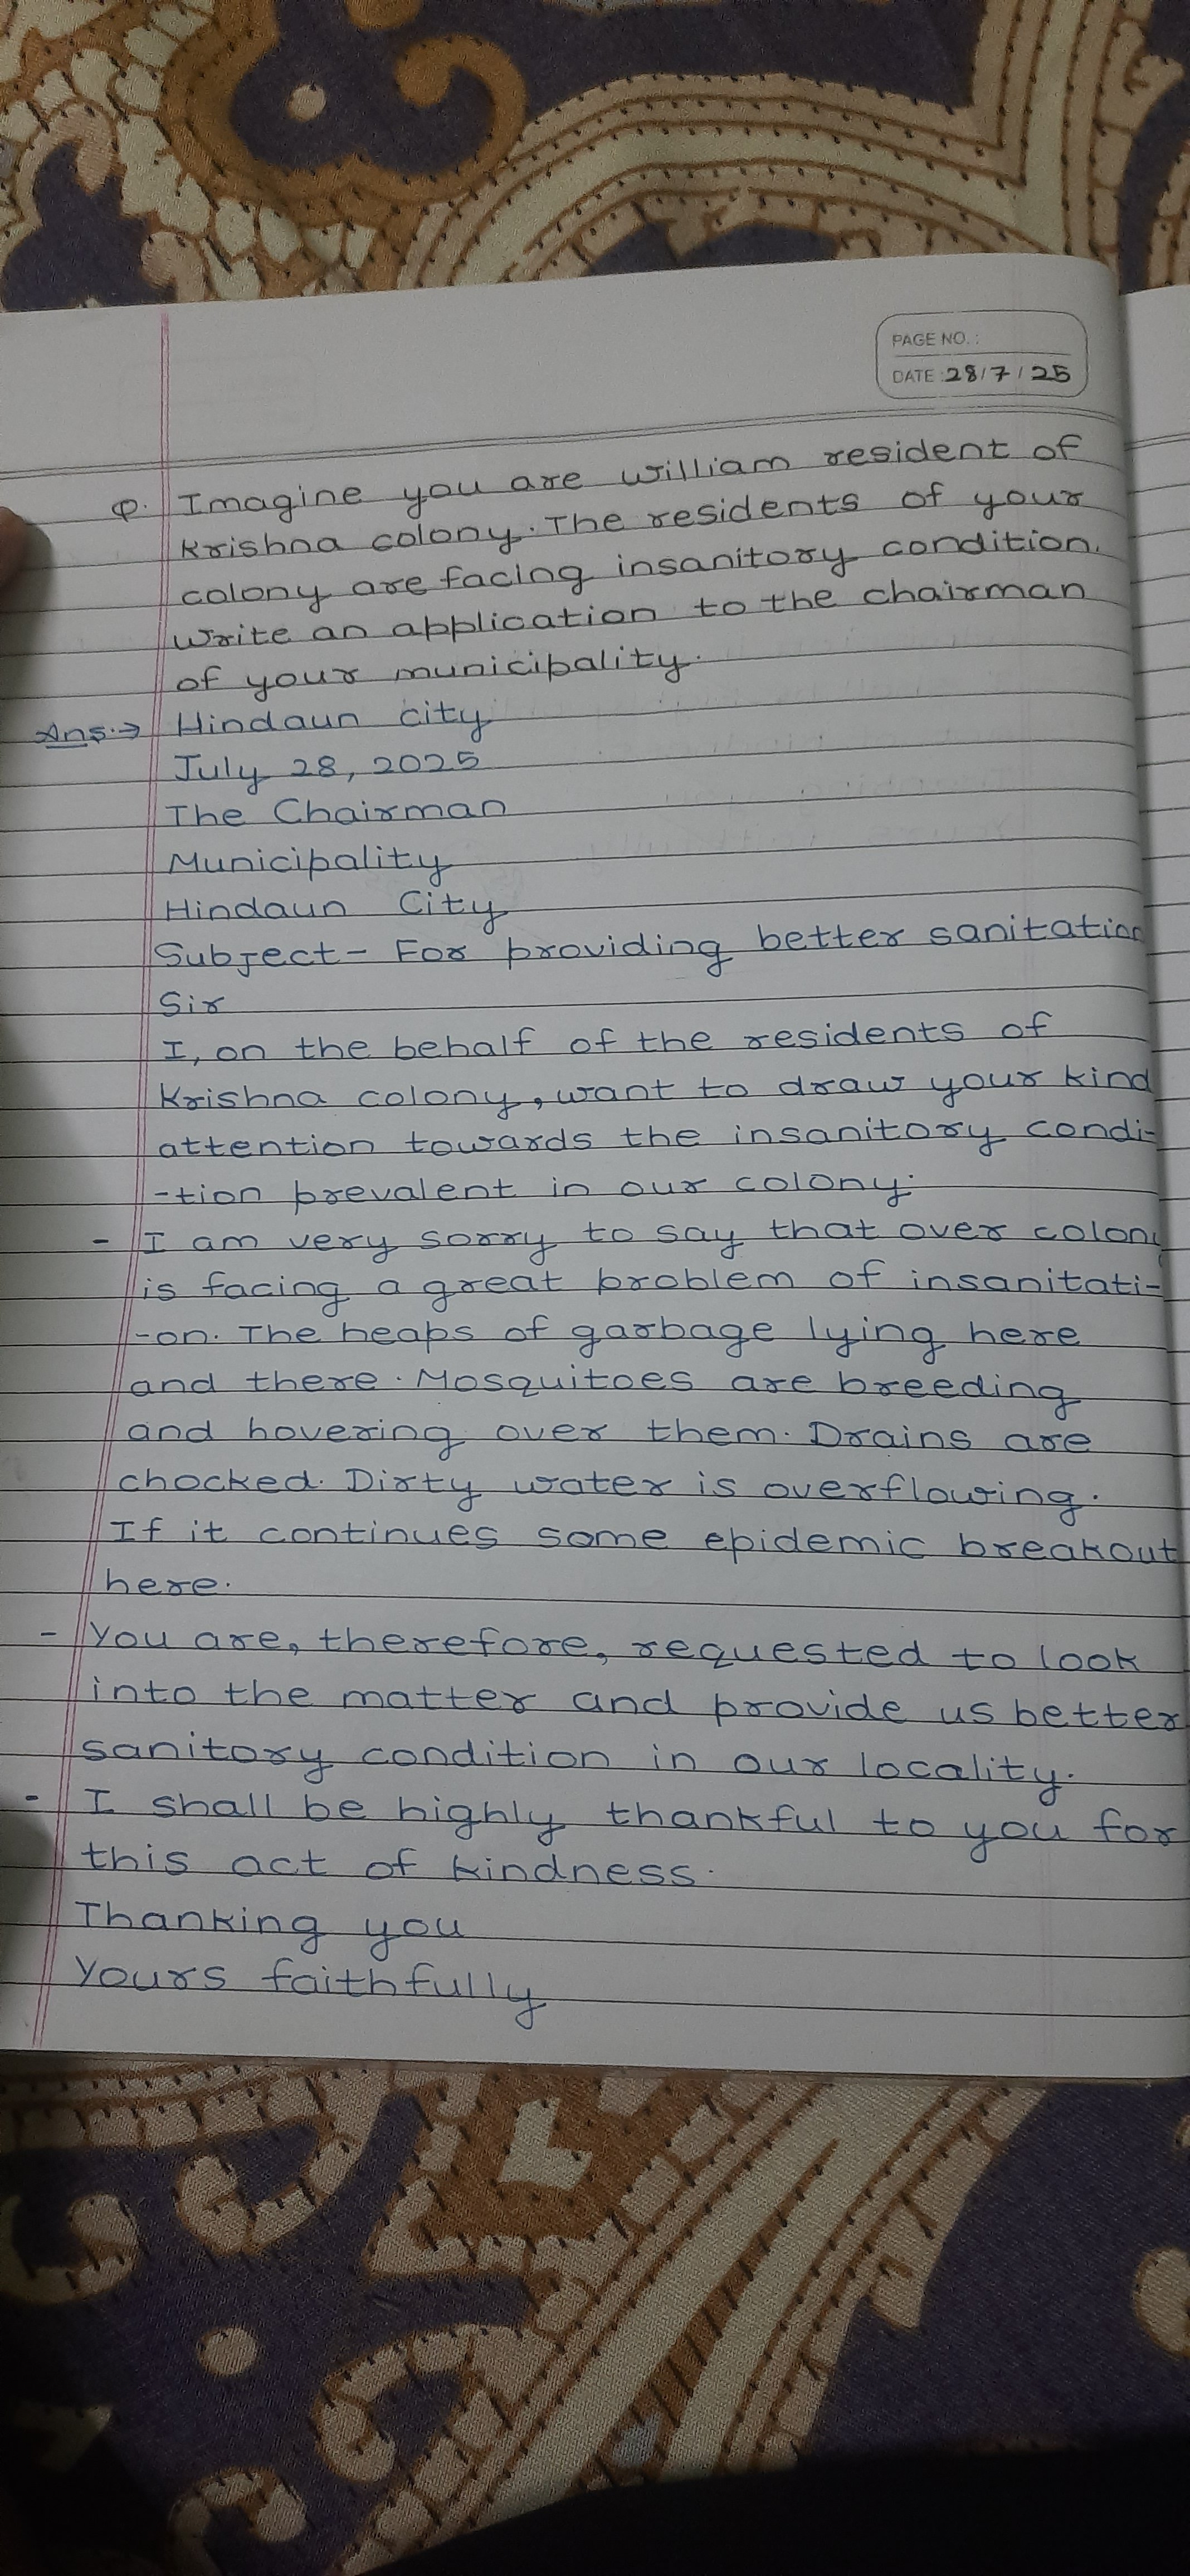 PAGE NO.:
DATE: 28/7/25
Q. Imagine you are william resident of
Krishna colony. The residents of your
colony are facing insanitory condition.
write an application to the chairman
of your municipality.
Ans.→ Hindaun city
July 28, 2025
The Chairman
Municipality
Hindaun City
Subject- For providing better sanitation
Sir
I, on the behalf of the residents of
Krishna colony, want to draw your kind
attention towards the insanitory condi-
-tion prevalent in our colony.
- I am very sorry to say that over colony
is facing a great problem of insanitati-
-on. The heaps of garbage lying here
and there. Mosquitoes are breeding
and hovering over them. Drains are
chocked. Dirty water is overflowing.
If it continues some epidemic breakout
here.
- You are, therefore, requested to look
into the matter and provide us better
sanitory condition in our locality.
- I shall be highly thankful to you for
this act of kindness.
Thanking you
Yours faithfully